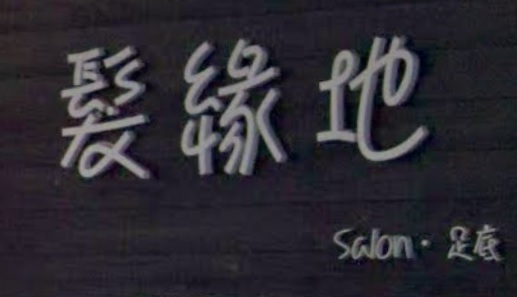 髮緣地
Salon · 足底